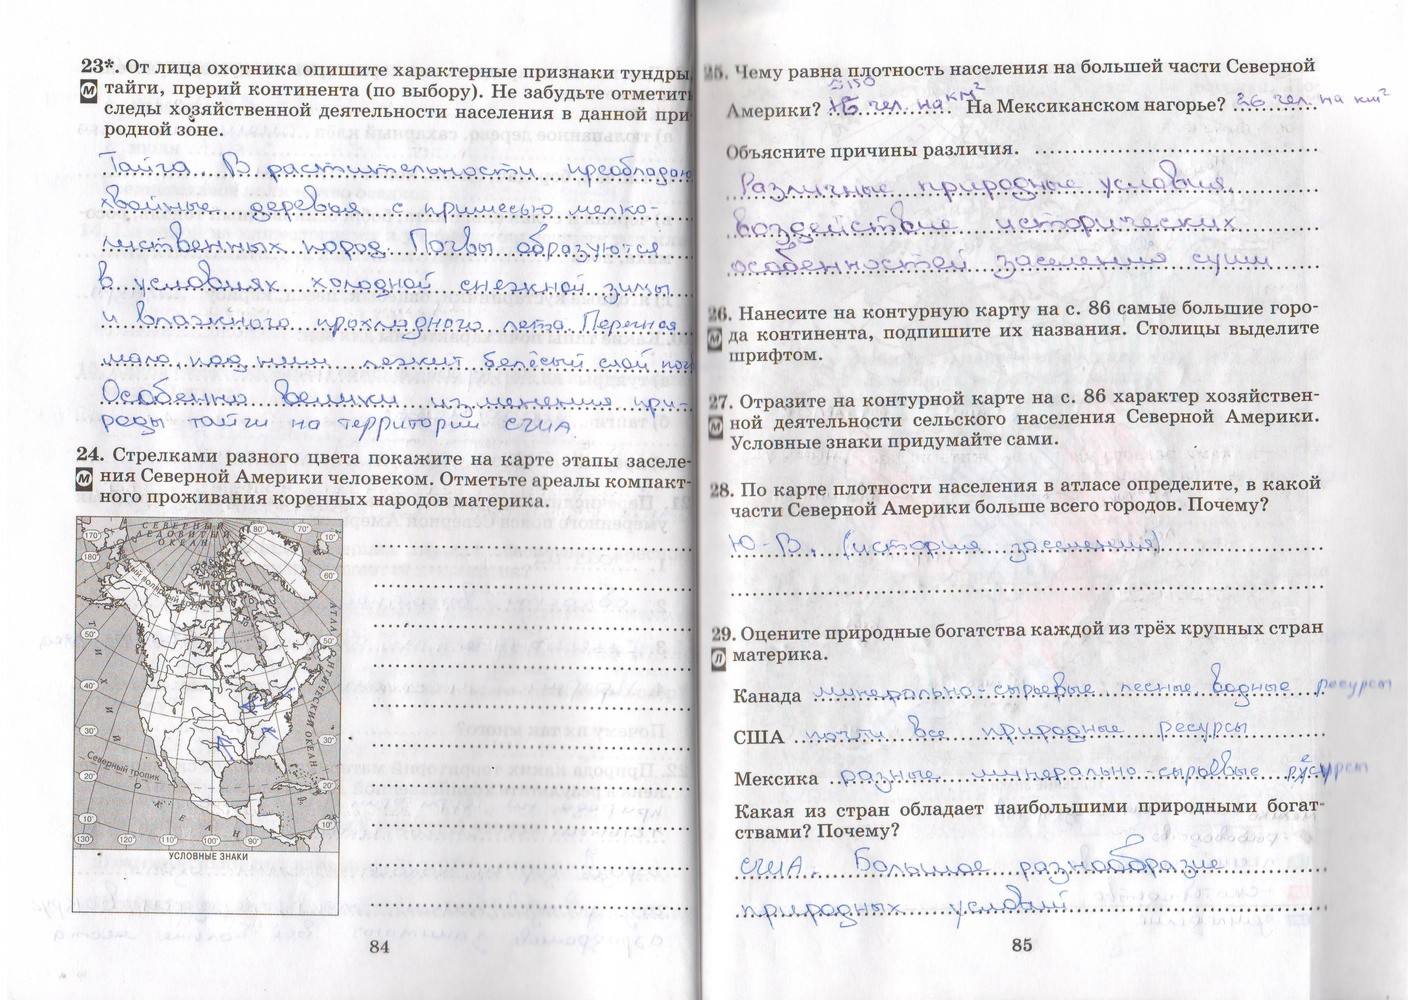 23*. От лица охотника опишите характерные признаки тундры,
М тайги, прерий континента (по выбору). Не забудьте отметить
следы хозяйственной деятельности населения в данной при-
родной зоне.
Тайга. В растительности преобладаю
хвойные деревья с примесью мелко-
лиственных пород. Почвы образуются
в условиях холодной снежной зимы
и влажного прохладного лета. Перегноя
мало, под ним лежит белёсый слой поч
Особенно велики изменения при-
роды тайги на территории США
24. Стрелками разного цвета покажите на карте этапы заселе-
М ния Северной Америки человеком. Отметьте ареалы компакт-
ного проживания коренных народов материка.
СЕВЕРНЫЙ
ЛЕДОВИТЫЙ
ОКЕАН
80° 70° 10°
170°
180°
60°
50° 50°
40°
30° 30°
Северный тропик
20° 20°
10° 10°
130° 120° 110° 100° 90°
ТИХИЙ
ОКЕАН
АТЛАНТИЧЕСКИЙ ОКЕАН
УСЛОВНЫЕ ЗНАКИ
84
25. Чему равна плотность населения на большей части Северной
Америки? чел. на км² На Мексиканском нагорье? 26 чел. на км²
Объясните причины различия.
Различные природные условия,
воздействие исторических
особенностей заселения суши
26. Нанесите на контурную карту на с. 86 самые большие горо-
М да континента, подпишите их названия. Столицы выделите
шрифтом.
27. Отразите на контурной карте на с. 86 характер хозяйствен-
М ной деятельности сельского населения Северной Америки.
Условные знаки придумайте сами.
28. По карте плотности населения в атласе определите, в какой
части Северной Америки больше всего городов. Почему?
Ю-В. (история заселения)
29. Оцените природные богатства каждой из трёх крупных стран
Л материка.
Канада минерально-сырьевые лесные водные ресурсы
США почти все природные ресурсы
Мексика разные минерально сырьевые ресурсы
Какая из стран обладает наибольшими природными богат-
ствами? Почему?
США. Большое разнообразие
природных условий
85